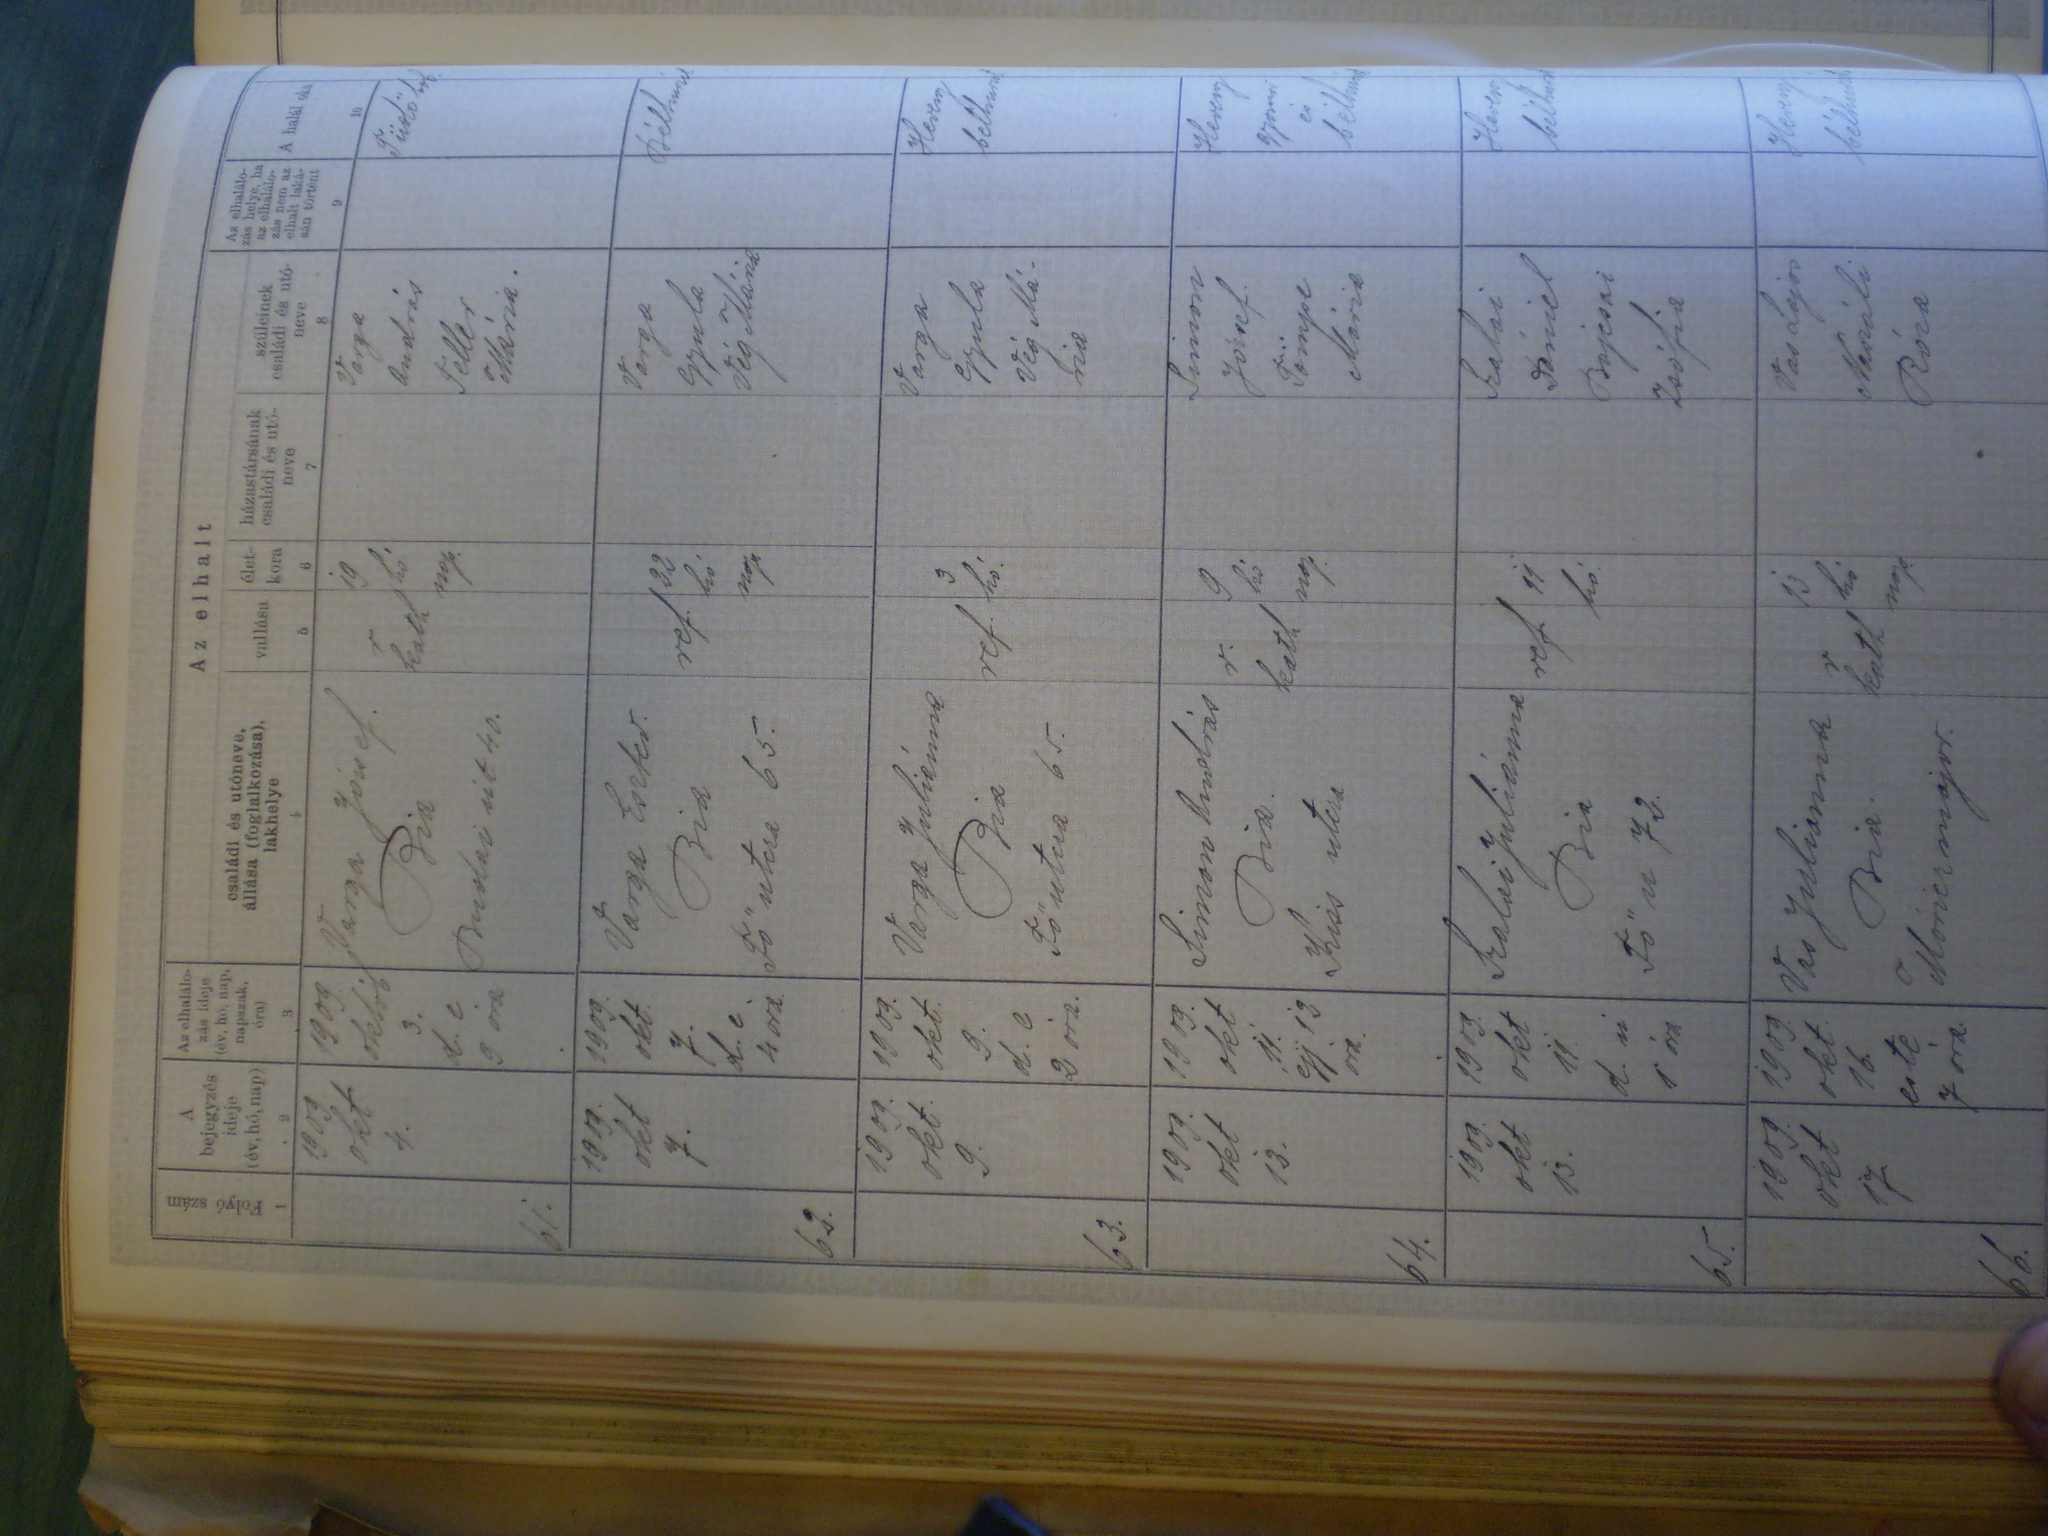 Az elhalt
Folyó szám
A bejegyzés ideje (év, hó, nap)
Az elhalálo-
zás ideje
(év, hó, nap,
napszak,
óra)
családi és utóneve,
állása (foglalkozása),
lakhelye
vallása
élet-
kora
házastársának
családi és utó-
neve
szüleinek
családi és utó-
neve
Az elhalálo-
zás helye, ha
az elhálálo-
zás nem az
elhalt laká-
sán történt
A halál oka
1 2 3 4 5 6 7 8 9 10
61.
1909
okt
4.
1909
októb
3.
d. e
9 óra
Varga József.
Bia
Budai út 40.
r
kath
19
hó
nap.
Varga
András
Teller
Mária.
62.
1909.
okt
7.
1909.
okt.
7.
d. e.
4 óra
Varga Eszter.
Bia
Fő utca 65.
ref.
32
hó
nap
Varga
Gyula
Vég Mária
63.
1909.
okt.
9.
1909.
okt.
9.
d. e
2 óra.
Varga Juliánna
Bia
Fő utca 65.
ref.
3
hó.
Varga
Gyula
Vég Má-
ria
Heveny
64.
1909.
okt
13.
1909.
okt
11.
éjj
óra.
Simon András
Bia.
Kiss utca
r.
kath
9
hó
nap.
Simon
József.
Tömpe
Mária
Heveny
gyomor
és
65.
1909.
okt
13.
1909.
okt
11
d. u
1 óra
Szalai Juliánna
Bia
Fő u 72.
ref
11
hó.
Szalai
Dániel
Bojcsai
Zsófia
Heveny
66.
1909.
okt
17
1909
okt.
16.
este
7 óra
Vas Julianna
Bia.
Móriczmajor.
r
kath
13
hó
nap
Vas Lajos
Róza
Heveny